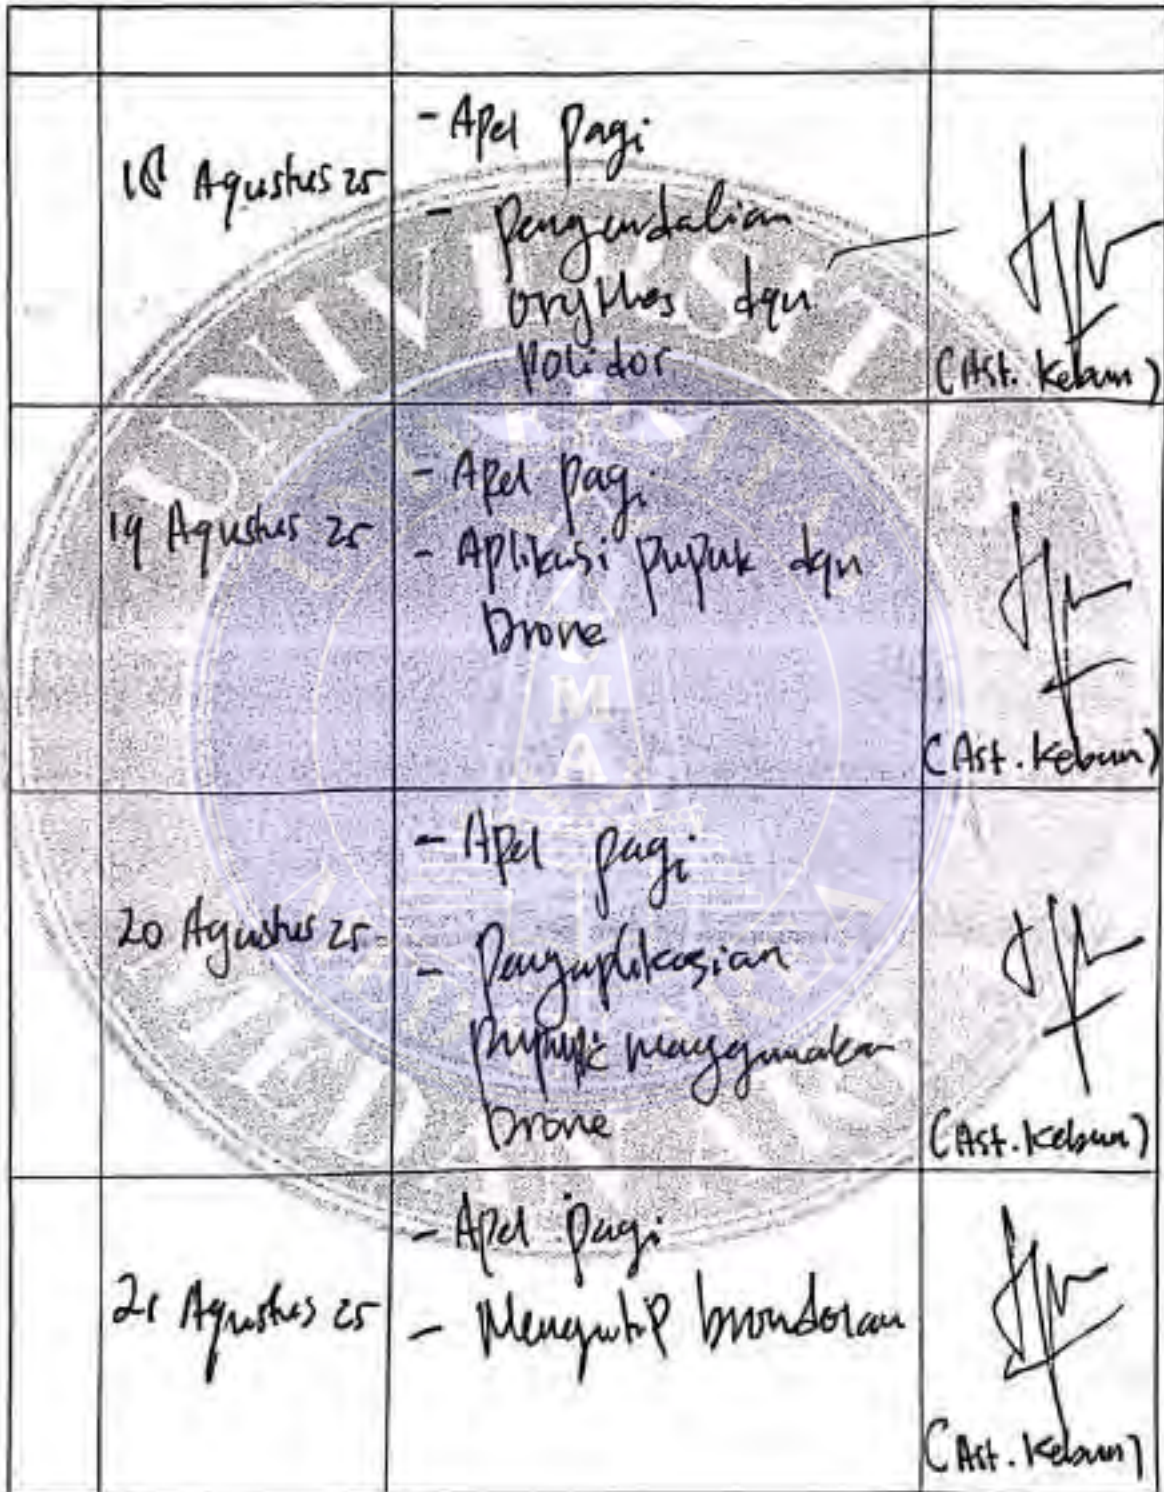 18 Agustus 25
- Apel pagi
- pengendalian
orythes dgn
Polidor
(Ast. Kebun)
19 Agustus 25
- Apel pagi
- Aplikasi pupuk dgn
Drone
(Ast. Kebun)
20 Agustus 25
- Apel pagi
- Pengaplikasian
pupuk menggunakan
Drone
(Ast. Kebun)
21 Agustus 25
- Apel pagi
- Mengutip brondolan
(Ast. Kebun)
UNIVERSITAS
UNIVERSITAS
MEDAN AREA